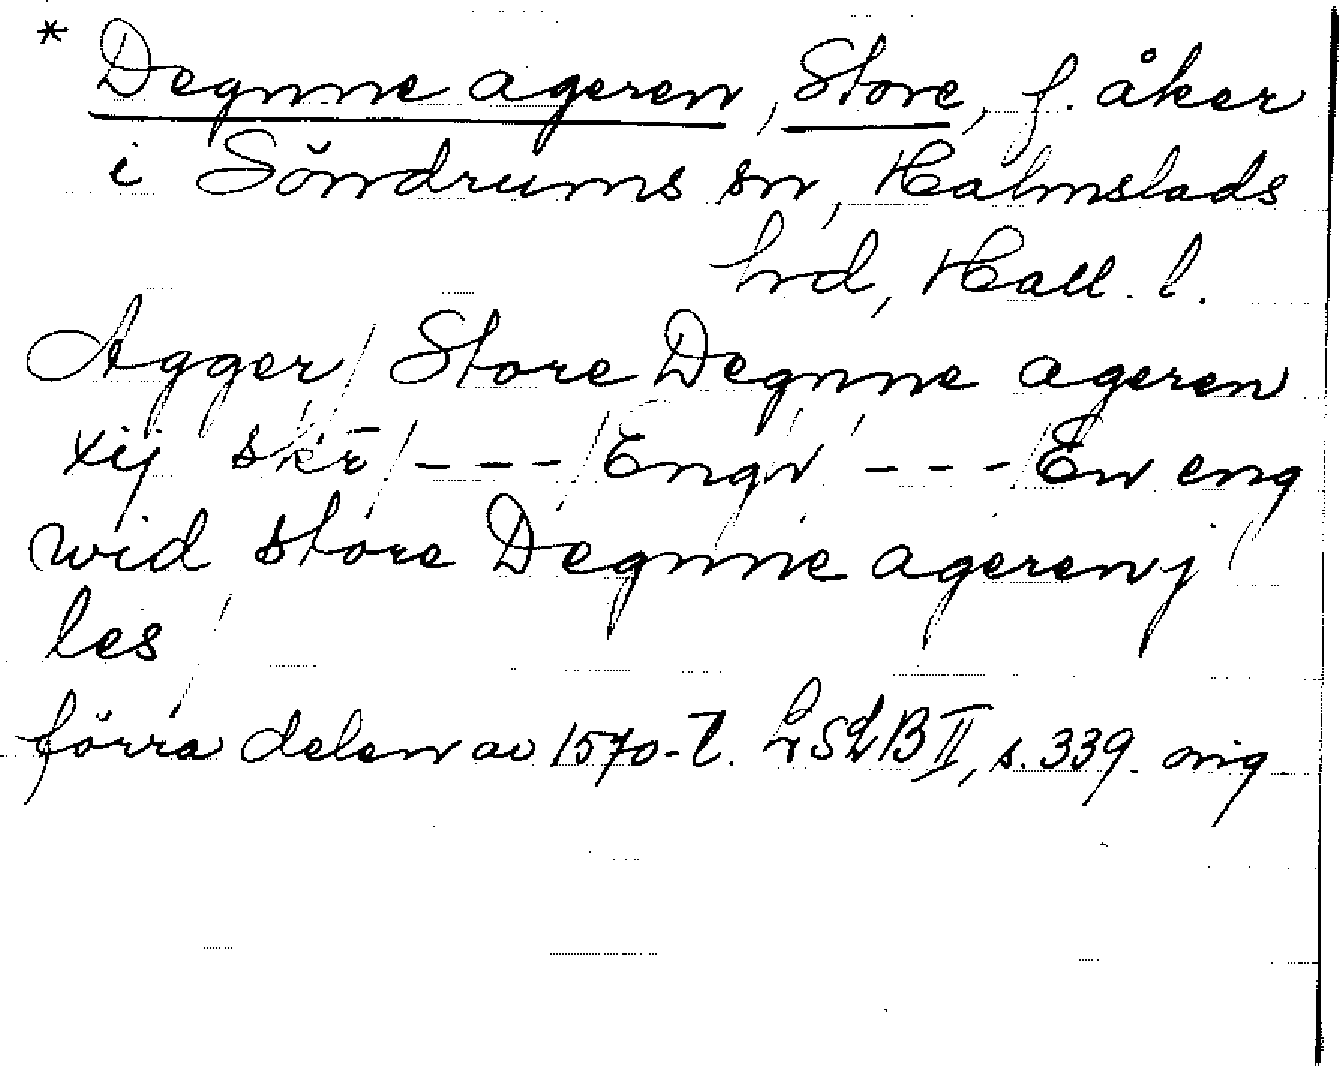 * Degnne ageren, Store, f. åker
i Söndrums sn, Halmstads
hrd, Hall. l.
Agger / Store Degnne ageren
xij skē / - - - / Engh - - - / En eng
wid store Degnne ageren j
les /
förra delen av 1570-t. LSLB II, s. 339. orig